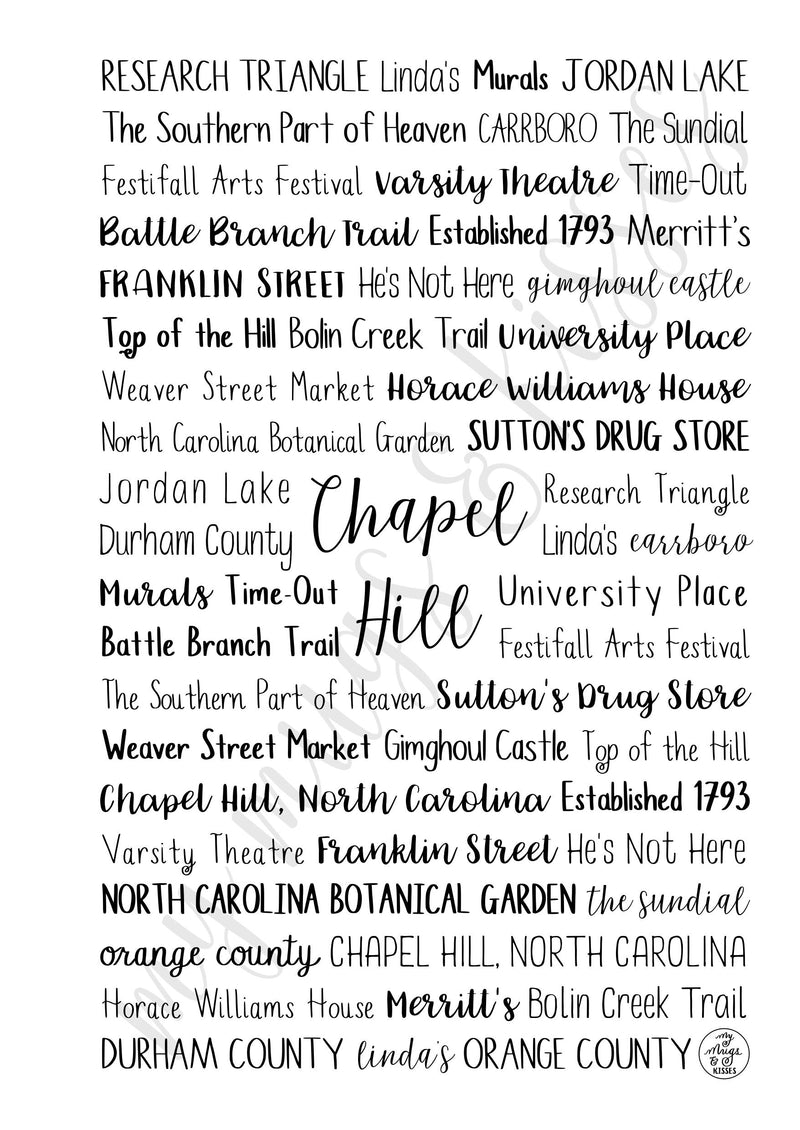 RESEARCH TRIANGLE Linda's Murals JORDAN LAKE
The Southern Part of Heaven CARRBORO The Sundial
Festifall Arts Festival Varsity Theatre Time-Out
Battle Branch Trail Established 1793 Merritt's
FRANKLIN STREET He's Not Here gimghoul castle
Top of the Hill Bolin Creek Trail University Place
Weaver Street Market Horace Williams House
North Carolina Botanical Garden SUTTON'S DRUG STORE
Jordan Lake Chapel Research Triangle
Durham County Linda's carrboro
Murals Time-Out Hill University Place
Battle Branch Trail Festifall Arts Festival
The Southern Part of Heaven Sutton's Drug Store
Weaver Street Market Gimghoul Castle Top of the Hill
Chapel Hill, North Carolina Established 1793
Varsity Theatre Franklin Street He's Not Here
NORTH CAROLINA BOTANICAL GARDEN the sundial
orange county CHAPEL HILL, NORTH CAROLINA
Horace Williams House Merritt's Bolin Creek Trail
DURHAM COUNTY linda's ORANGE COUNTY
my
Mugs
&
KISSES
my mugs & kisses